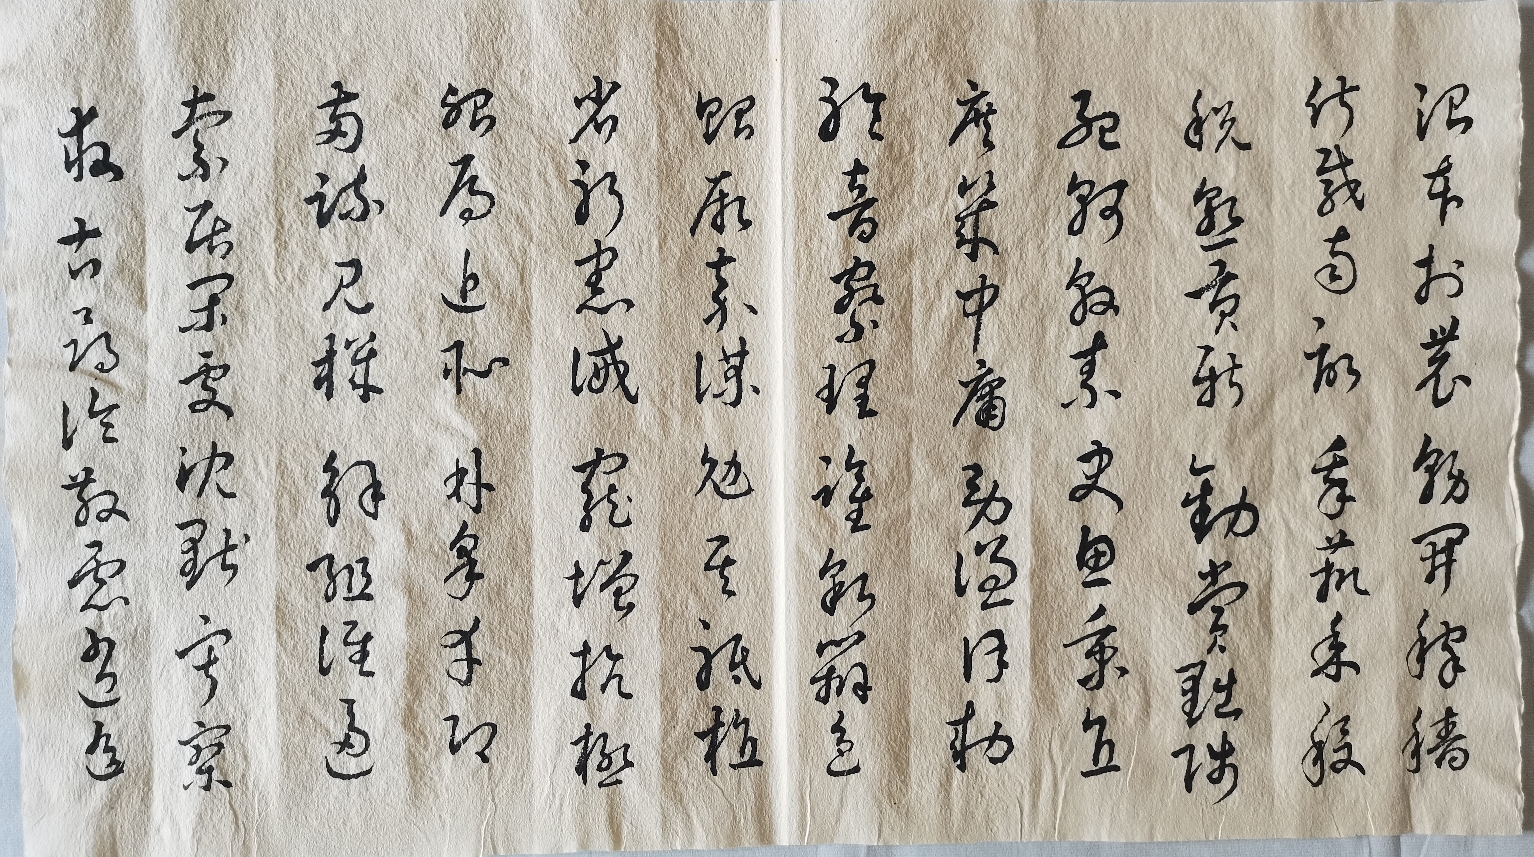 治本於農務茲稼穡
俶載南畝我藝黍稷
稅熟貢新勸賞黜陟
孟軻敦素史魚秉直
庶幾中庸勞謙謹敕
聆音察理鑑貌辨色
貽厥嘉猷勉其祗植
省躬譏誡寵增抗極
殆辱近恥林皋幸即
兩疏見機解組誰逼
索居閑處沈默寂寥
求古尋論散慮逍遙